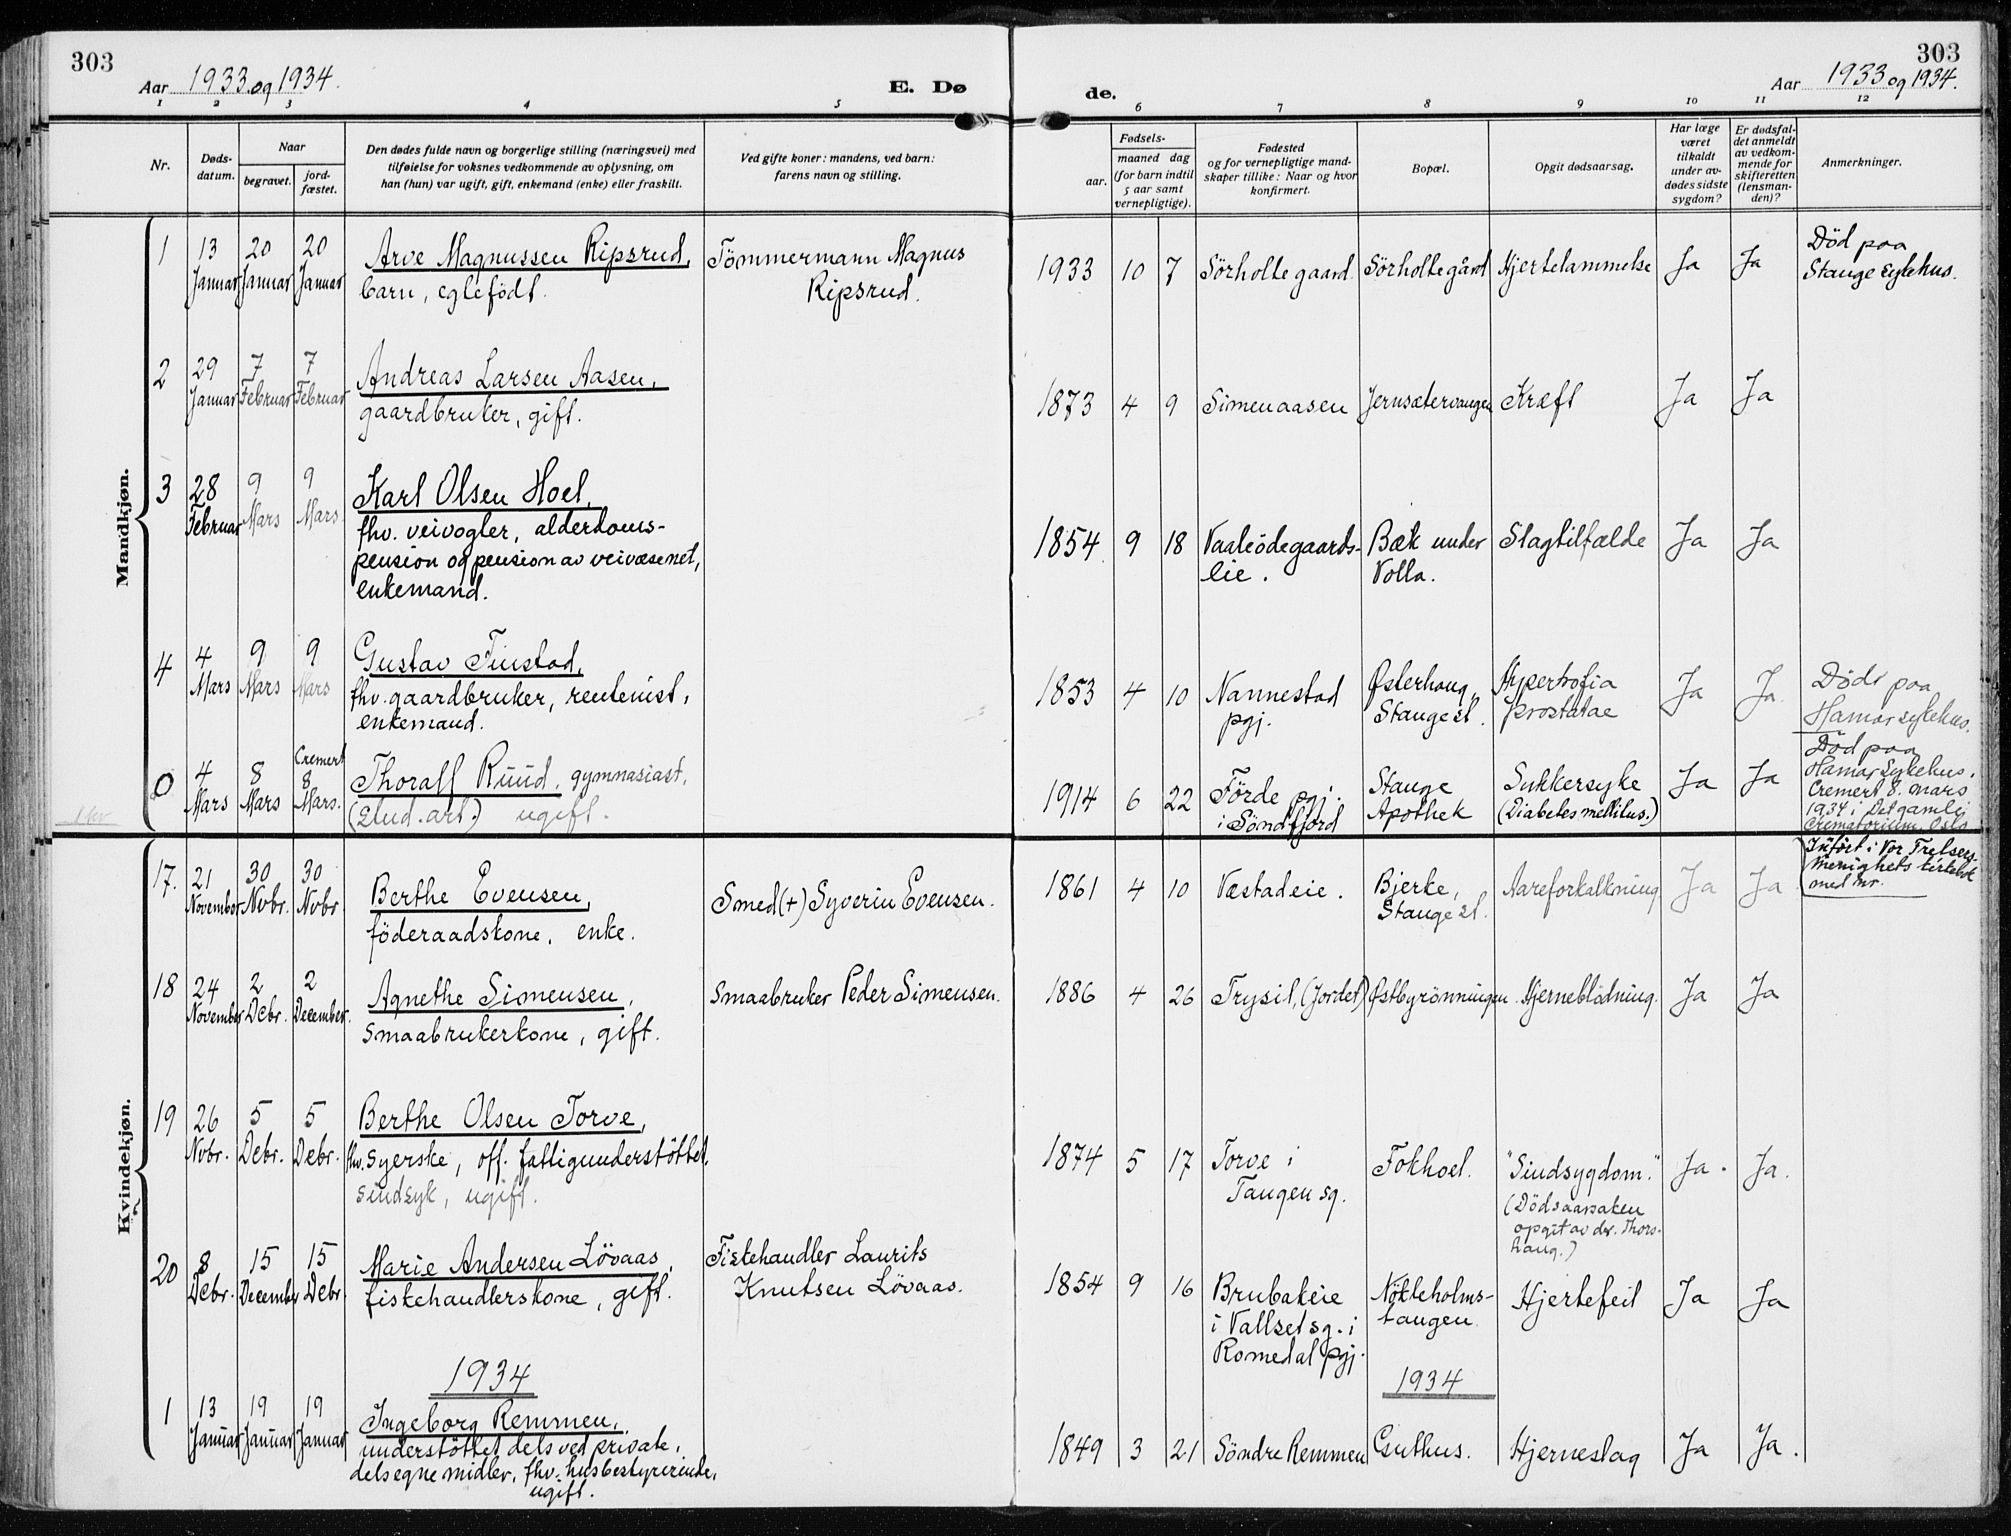 303
Aar 1933 og 1934.
E. Dø
1 2 3 4 5
Nr.
Døds-
datum.
Naar
begravet.
jord-
fæstet.
Den dødes fulde navn og borgerlige stilling (næringsvei) med
tilføielse for voksnes vedkommende av oplysning, om
han (hun) var ugift, gift, enkemand (enke) eller fraskilt.
Ved gifte koner: mandens, ved barn:
farens navn og stilling.
Mandkjøn.
1 13 20 20 Arve Magnussen Ripsrud, Tömmermann Magnus
Januar Januar Januar barn, egtefödt. Ripsrud.
2 29 7 7 Andreas Larsen Aasen,
Januar Februar Februar gaardbruker, gift.
3 28 9 9 Karl Olsen Hoel,
Februar Mars Mars. fhv. veivogter, alderdoms-
pension og pension av veivæsenet,
enkemand.
4 4 9 9 Gustav Finstad,
Mars Mars Mars fhv. gaardbruker, rentenist,
enkemand.
Cremert
0 4 8 8 Thoralf Ruud, gymnasiast,
Mars Mars Mars. (Stud. art.) ugift.
Kvindekjøn.
17. 21 30 30 Berthe Evensen, Smed (+) Syverin Evensen.
November Nvbr. Nvbr. föderaadskone, enke.
18 24 2 2 Agnethe Simensen, Smaabruker Peder Simensen.
November Debr. December. smaabrukerkone, gift.
19 26 5 5 Berthe Olsen Torve,
Nvbr. Debr. Debr. fhv. syerske, off. fattigunderstöttet,
sindsyk, ugift.
20 8 15 15 Marie Andersen Lövaas, Fiskehandler Laurits
Debr. December Debr. fiskehandlerskone, gift. Knutsen Lövaas.
1934
1 13 19 19 Ingeborg Remmen,
Januar Januar Januar understöttet dels ved private,
dels egne midler, fhv. husbestyrerinde,
ugift.
303
Aar 1933 og 1934.
de.
6 7 8 9 10 11 12
Fødsels-
aar.
maaned dag
(for barn indtil
5 aar samt
vernepligtige).
Fødested
og for vernepligtige mand-
skaper tillike: Naar og hvor
konfirmert.
Bopæl.
Opgit dødsaarsag.
Har læge
været
tilkaldt
under av-
dødes sidste
sygdom?
Er dødsfal-
det anmeldt
av vedkom-
mende for
skifteretten
(lensman-
den)?
Anmerkninger.
1933 10 7 Sörholte gaard. Sörholte gård Hjertelammelse Ja Ja Död paa
Stange sykehus.
1873 4 9 Simenaasen Jernsætervangen Kræft Ja Ja
1854 9 18 Vaaleödegaards- Bæk under Slagtilfælde Ja Ja
eie. Volla.
1853 4 10 Nannestad Østerhaug, Hypertrofia Ja Ja. Död paa
pgj. Stange st. prostatae Hamar sykehus.
1914 6 22 Förde pgj. Stange Sukkersyke Ja Ja Död paa
i Söndfjord Apothek (Diabetes mellitus.) Hamar Sykehus.
Cremert 8. mars
1934 i Det gamle
Crematorium, Oslo
Infört i Vor Frelsers
menighets kirkebok
med nr.
1861 4 10 Væstadeie. Bjerke, Aareforkalkning Ja Ja
Stange st.
1886 4 26 Trysil, (Jordet) Østbyrönningen. Hjerneblödning. Ja Ja
1874 5 17 Torve i Fokhoel. "Sindsygdom." Ja. Ja.
Tangen sg. (Dödsaarsaken
opgit av dr. Thors-
haug.)
1854 9 16 Brubakeie Nökleholms- Hjertefeil Ja Ja
i Vallset sg. i tangen.
Romedal pgj.
1934
1849 3 21 Söndre Remmen Guthus. Hjerneslag Ja Ja.